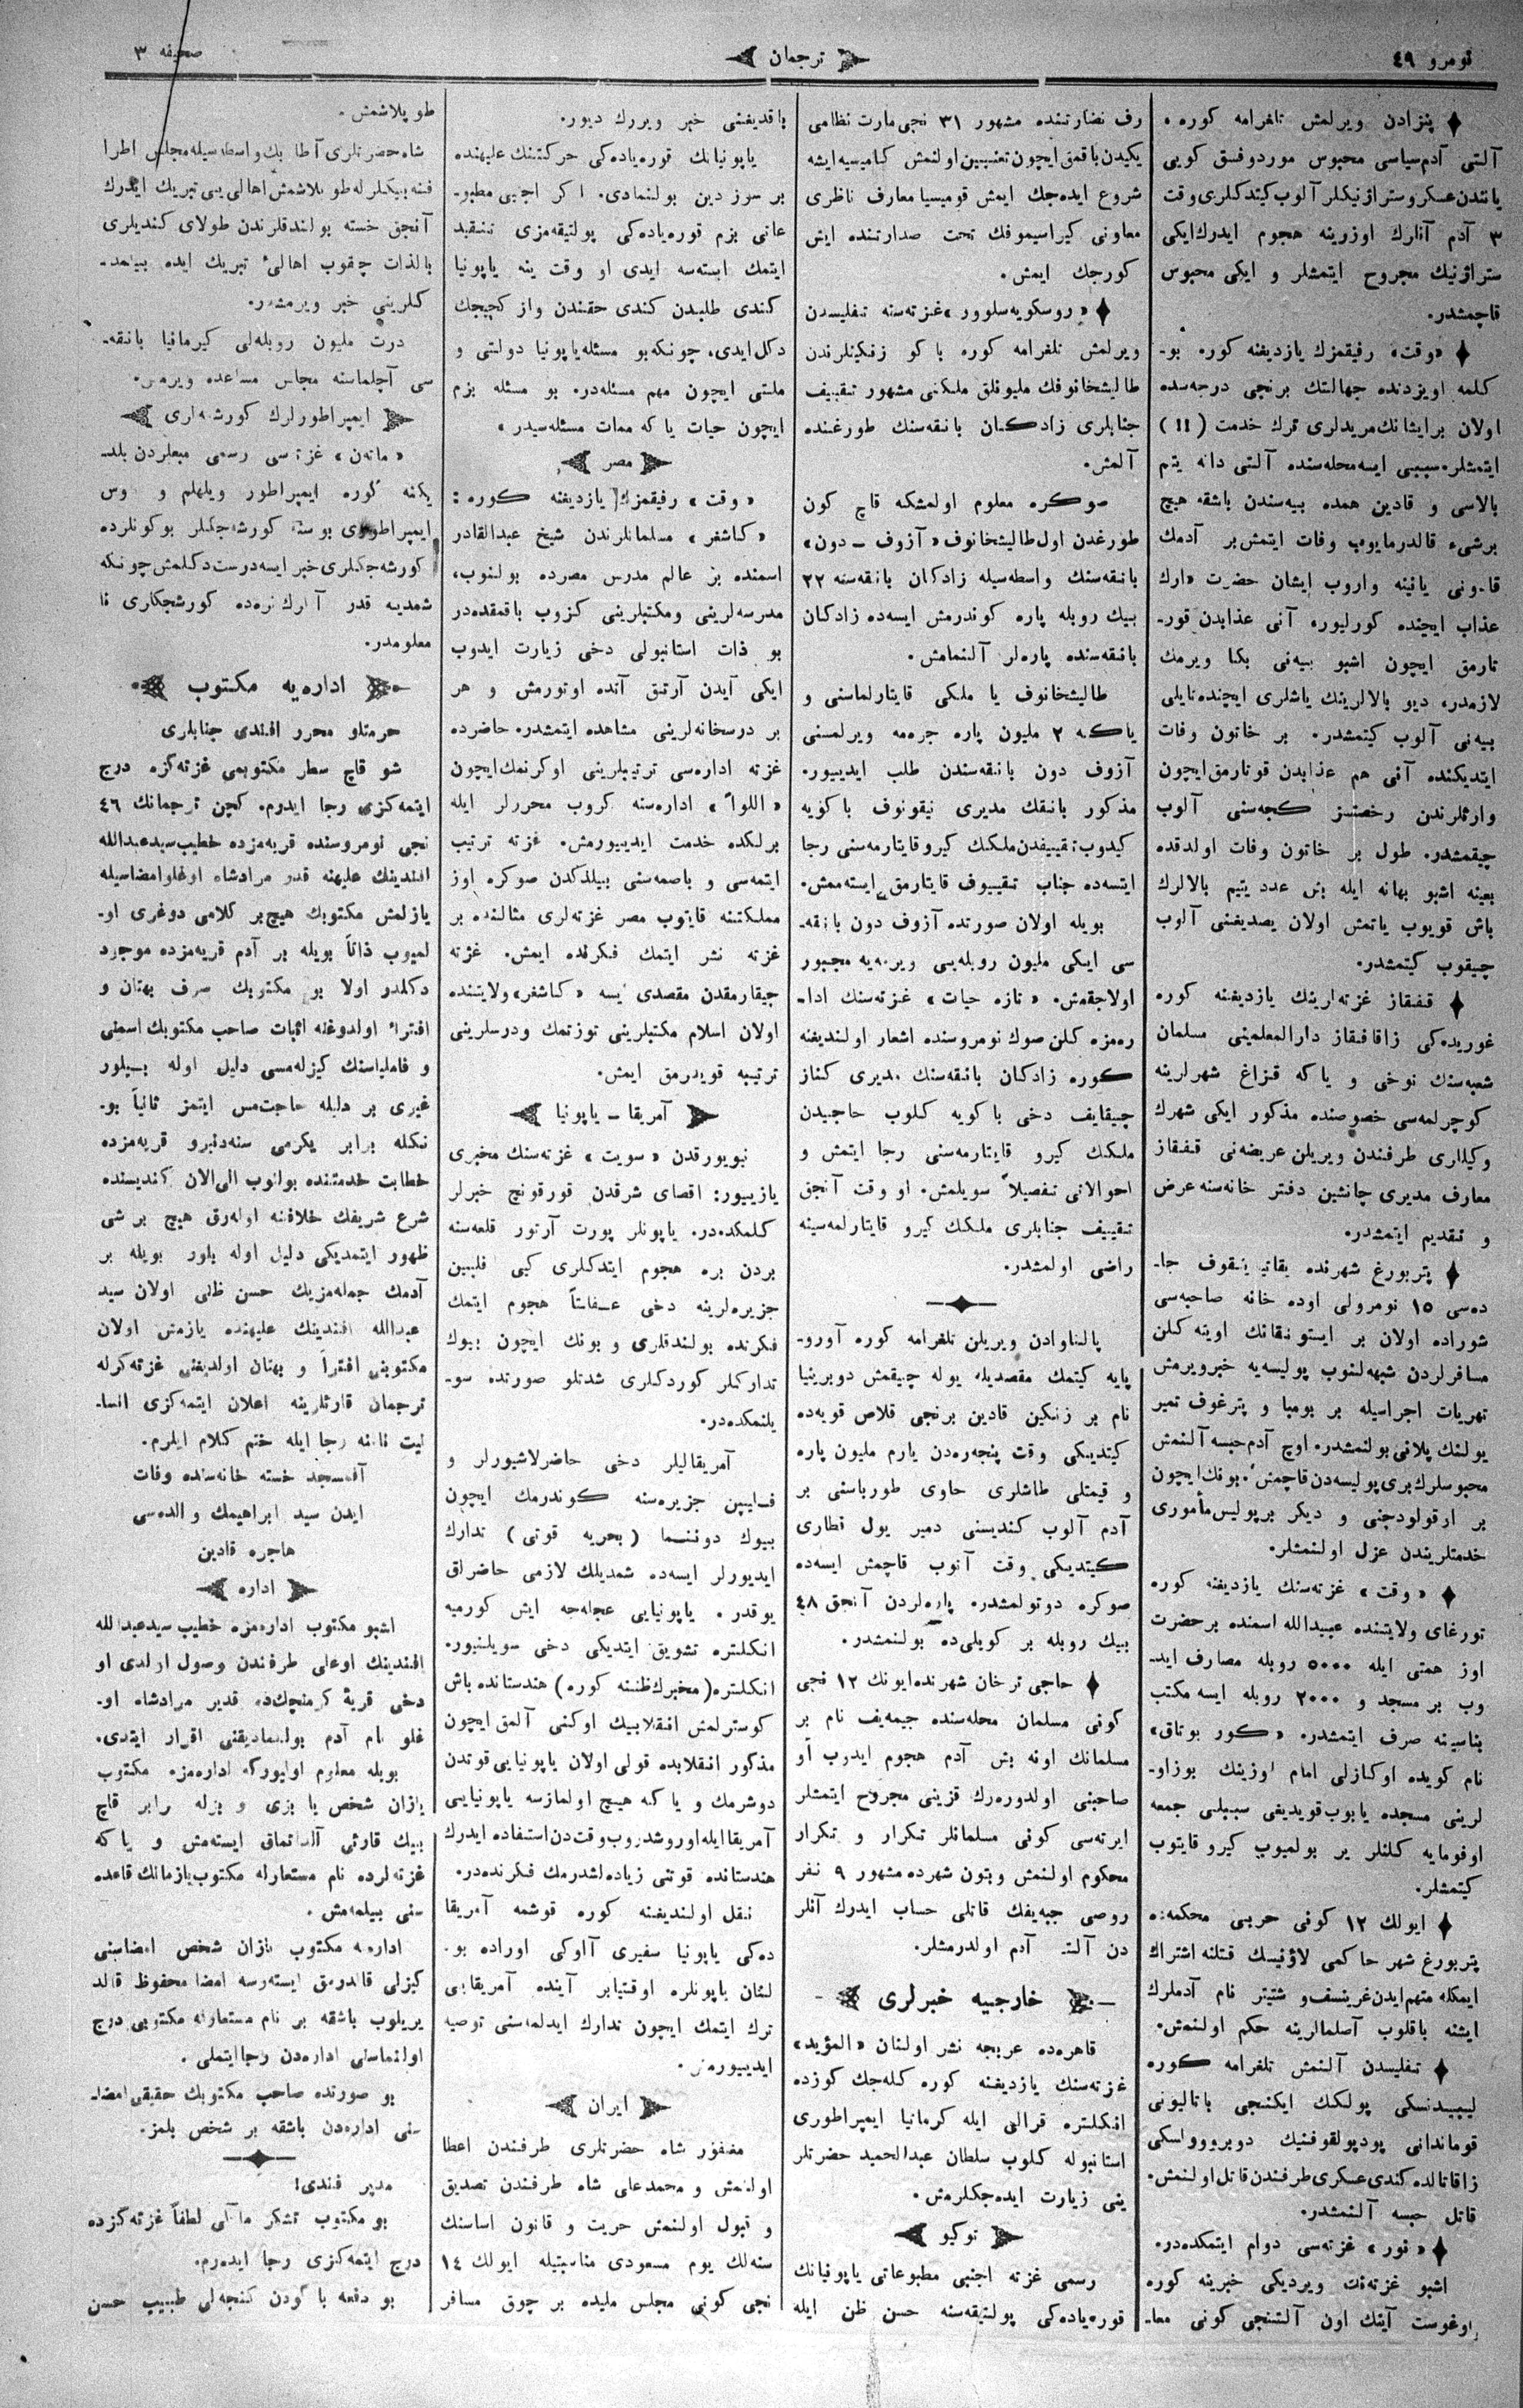 نومرو ٤٩
ترجمان
صحیفه ٣
پنزادن ویرلمش تلغرامه کوره
آلتی آدم سیاسی محبوس موردوفسق کویی
یانندن عسکر و ستراژنیکلر آلوب کیتدکلری وقت
٣ آدم آنلرك اوزرینه هجوم ایدرك ایکی
ستراژنیك مجروح ایتمشلر و ایکی محبوس
قاچمشدر.
«وقت» رفیقمزك یازدیغنه کوره بو-
کلمه اویزدنده جهالتك برنجی درجه‌سده
اولان بر ایشانك مریدلری ترك خدمت (!!)
ایتمشلر. سببی ایسه محله‌سنده آلتی دانه یتم
بالاسی و قادین همده بیه‌سندن باشقه هیچ
برشیء قالدرمایوب وفات ایتمش بر آدمك
یانینه واروب ایشان حضرت
عذاب ایچنده کورلیور، آنی عذابدن قور-
تارمق ایچون اشبو بیه‌نی بکا ویرمك
لازمدر، دیو بالالرینك یاشلری ایچنده
بیه‌نی آلوب کیتمشدر. بر خاتون وفات
ایتدیکنده آنی هم عذابدن قوتارمق ایچون
وارثلرندن رخصتسز کجه‌سنی آلوب
چیقمشدر. طول بر خاتون وفات اولدقده
بعینه اشبو بهانه ایله بش عدد یتیم بالالرك
باش قویوب یاتمش اولان یصدیغنی آلوب
چیقوب کیتمشدر.
قفقاز غزته‌لرینك یازدیغنه کوره
غوریده‌کی زاقافقاز دارالمعلمینی مسلمان
شعبه‌سنك نوخی و یا که قزاغ شهرلرینه
کوچرلمه‌سی خصوصنده مذکور ایکی شهرك
وکیلاری طرفندن ویریلن عریضه‌نی قفقاز
معارف مدیری جانشین دفتر خانه‌سنه عرض
و تقدیم ایتمشدر.
پتربورغ شهرنده
ده‌سی ١٥ نومرولی اوده خانه صاحبه‌سی
شوراده اولان بر ایستونقانك اوینه کلن
مسافرلردن شبهه‌لنوب پولیسه‌یه خبر ویرمش
تهریات اجراسیله بر بومبا و پترغوف تمیر
یولنك پلانی بولنمشدر. اوچ آدم حبسه آلنمش
محبوسلرك بری پولیسه‌دن قاچمش. بونك ایچون
بر ارقولودچنی و دیکر بر پولیس مأموری
خدمتلریندن عزل اولنمشلر.
«وقت» غزته‌سنك یازدیغنه کوره
تورغای ولایتنده عبیدالله اسمنده بر حضرت
اوز همتی ایله ٥٠٠٠ روبله مصارف اید-
وب بر مسجد و ٢٠٠٠ روبله ایسه مکتب
بناسینه صرف ایتمشدر. «کور بوتاق»
نام کویده اوکازلی امام اوزینك بوزاو-
لرینی مسجده یابوب قویدیغی سببلی جمعه
اوقومایه کلنلر یر بولمیوب کیرو قایتوب
کیتمشلر.
ایولك ١٢ کونی حربی محکمه‌ده
پتربورغ شهر حاکمی لاؤنیسك قتلنه اشتراك
ایمکله متهم ایدن غرینسف و شتیتر نام آدملرك
ایشنه باقلوب آصلمالرینه حکم اولنمش.
تفلیسدن آلنمش تلغرامه کوره
لیبیدنسکی پولکك ایکنجی باتالیونی
قوماندانی پودپولقوفنیك
زاقاتالده کندی عسکری طرفندن قاتل اولنمش.
قاتل حبسه آلنمشدر.
«نور» غزته‌سی دوام ایتمکده‌در.
اشبو غزته‌نك ویردیکی خبرینه کوره
اوغوست آینك اون آلتنجی کونی معا-
رف نضارتنده مشهور ٣١ نجی مارت نظامی
یکیدن باقمق ایچون تعیین اولنمش کامیسیه ایشه
شروع ایده‌جك ایمش قومیسیا معارف ناظری
معاونی کیراسیموفك تحت صدارتنده ایش
کورجك ایمش.
«روسکویه سلوو» غزته‌سنه تفلیسدن
ویرلمش تلغرامه کوره باکو زنکینلرندن
طالیشخانوفك ملیونلق ملکنی مشهور تقییف
جنابلری زادکان بانقه‌سنك طورغنده
آلمش.
صوکره معلوم اولمشکه قاچ کون
طورغدن اول طالیشخانوف «آزوف - دون»
بانقه‌سنك واسطه‌سیله زادکان بانقه‌سنه ٢٢
بیك روبله پاره کوندرمش ایسه‌ده زادکان
بانقه‌سنده پاره‌لر آلنمامش.
طالیشخانوف یا ملکی قایتارلماسنی و
یا که ٢ ملیون پاره جرمه ویرلمسنی
آزوف دون بانقه‌سندن طلب ایدییور.
مذکور بانقك مدیری نیقونوف باکویه
کیدوب تقییفدن ملکك کیرو قایتارمه‌سنی رجا
ایتسه‌ده جناب تقییوف قایتارمق ایسته‌ممش.
بویله اولان صورتده آزوف دون بانقه-
سی ایکی ملیون روبله‌یی ویرمه‌یه مجبور
اولاجقمش. «تازه حیات» غزته‌سنك ادا-
ره‌مزه کلن صوك نومروسنده اشعار اولندیغنه
کوره زادکان بانقه‌سنك مدیری کناز
چیقایف دخی باکویه کلوب حاجیدن
ملکك کیرو قایتارمه‌سنی رجا ایتمش و
احوالاتی تفصیلاً سویلمش. او وقت آنجق
تقییف جنابلری ملکك کیرو قایتارلمه‌سینه
راضی اولمشدر.
یالتاوادن ویریلن تلغرامه کوره آورو-
پایه کیتمك مقصدیله یوله چیقمش دوبرینیا
نام بر زنکین قادین برنجی قلاص قوپه‌ده
کیتدیکی وقت پنجره‌دن یارم ملیون پاره
و قیمتلی طاشلری حاوی طورباسنی بر
آدم آلوب کندیسنی دمیر یول قطاری
کیتدیکی وقت آتوب قاچمش ایسه‌ده
صوکره دوتولمشدر. پاره‌لردن آنجق ٤٨
بیك روبله بر کویلی‌ده بولنمشدر.
حاجی ترخان شهرنده ایونك ١٢ نجی
کونی مسلمان محله‌سنده جیمه‌یف نام بر
مسلمانك اونه بش آدم هجوم ایدرب أو
صاحبنی اولدوره‌رك قزینی مجروح ایتمشلر
ایرته‌سی کونی مسلمانلر تکرار و تکرار
محکوم اولنمش و بتون شهرده مشهور ٩ نفر
روصی جیه‌یفك قاتلی حساب ایدرك آنلر
دن آلتی آدم اولدرمشلر.
خارجیه خبرلری
قاهره‌ده عربجه نشر اولنان «المؤید»
غزته‌سنك یازدیغنه کوره کله‌جك کوزده
انکلتره قرالی ایله کرمانیا ایمپراطوری
استانبوله کلوب سلطان عبدالحمید حضرتلر
ینی زیارت ایده‌جکلرمش.
توکیو
رسمی غزته اجنبی مطبوعاتی یاپونیانك
قوره‌یاده‌کی پولتیقه‌سنه حسن ظن ایله
باقدیغنی خبر ویررك دیور.
یاپونیانك قوره‌یاده‌کی حرکتنك علیهنده
بر سوز دین بولنمادی. اکر اجنبی مطبو-
عاتی بزم قوره‌یاده‌کی پولتیقه‌مزی تنقید
ایتمك ایسته‌سه ایدی او وقت ینه یاپونیا
کندی طلبدن کندی حقندن واز کچیجك
دکل ایدی. چونکه بو مسئله یاپونیا دولتی و
ملتی ایچون مهم مسئله‌در. بو مسئله بزم
ایچون حیات یا که ممات مسئله‌سیدر»
مصر
«وقت» رفیقمزك یازدیغنه کوره:
«کاشغر» مسلمانلرندن شیخ عبدالقادر
اسمنده بر عالم مدرس مصرده بولنوب،
مدرسه‌لرینی و مکتبلرینی کزوب باقمقده‌در
بو ذات استانبولی دخی زیارت ایدوب
ایکی آیدن آرتق آنده اوتورمش و هر
بر درسخانه‌لرینی مشاهده ایتمشدر. حاضرده
غزته اداره‌سی ترتیبلرینی اوکرنمك ایچون
«اللوأ» اداره‌سنه کروب محررلر ایله
برلکده خدمت ایدییورمش. غزته ترتیب
ایتمه‌سی و باصمه‌سنی بیلدکدن صوکره اوز
مملکتنه قایتوب مصر غزته‌لری مثالنده بر
غزته نشر ایتمك فکرنده ایمش. غزته
چیقارمقدن مقصدی ایسه «کاشغر» ولایتنده
اولان اسلام مکتبلرینی توزتمك و درسلرینی
ترتیبه قویدرمق ایمش.
آمریقا - یاپونیا
نیویورقدن «سویت» غزته‌سنك مخبری
یازییور: اقصای شرقدن قورقونچ خبرلر
کلمکده‌در. یاپونلر پورت آرتور قلعه‌سنه
بردن بره هجوم ایتدکلری کبی فلیپین
جزیره‌لرینه دخی هجوم ایتمك
فکرنده بولندقلری و بونك ایچون بیوك
تدارکلر کوردکلری شدتلو صورتده سو-
یلنمکده‌در.
آمریقالیلر دخی حاضرلاشیورلر و
فلیپین جزیره‌سنه کوندرمك ایچون
بیوك دوننما (بحریه قوتی) تدارك
ایدیورلر ایسه‌ده شمدیلك لازمی حاضرلق
یوقدر. یاپونیایی عجله‌جه ایش کورمیه
انکلتره تشویق ایتدیکی دخی سویلنیور.
انکلتره (مخبرك ظننه کوره) هندستانده باش
کوسترلمش انقلابیك اوکنی آلمق ایچون
مذکور انقلابده قولی اولان یاپونیایی قوتدن
دوشرمك و یا که هیچ اولمازسه یاپونیایی
آمریقا ایله اوروشدروب وقت‌دن استفاده ایدرك
هندستانده قوتنی زیاده‌لشدرمك فکرنده‌در.
نقل اولندیغنه کوره قوشمه آمریقا
ده‌کی یاپونیا سفیری آاوکی اوراده بو-
لنان یاپونلره اوقتیابر آینده آمریقایی
ترك ایتمك ایچون تدارك ایدلمه‌سنی توصیه
ایدییورمش.
ایران
مضفور شاه حضرتلری طرفندن اعطا
اولنمش و محمد علی شاه طرفندن تصدیق
و قبول اولنمش حریت و قانون اساسنك
سنه‌لك یوم مسعودی مناسبتیله ایولك ١٤
نجی کونی مجلس ملیده بر چوق مسافر
طوپلاشمش.
شاه حضرتلری آطا بك واسطه‌سیله مجلس اطرا
فنه بیکلرله طوپلاشمش اهالی‌یی تبریك ایدرك
آنجق خسته بولندقلرندن طولای کندیلری
بالذات چقوب اهالیٔ تبریك ایده بیلمد-
کلرینی خبر ویرمشدر.
درت ملیون روبله‌لی کیرمانیا بانقه-
سی آچلماسنه مجلس مساعده ویرمش.
ایمپراطورلرك کورشه‌لری
«ماتەن» غزته‌سی رسمی منبعلردن بلد-
یکنه کوره ایمپراطور ویلهلم و روس
ایمپراطوری بو سنه کورشه‌جکلر بو کونلرده
کورشه‌جکلری خبر ایسه دوست دکلمش چونکه
شمدیه قدر آنلرك نره‌ده کورشجکلری نا
معلومدر.
اداره‌یه مکتوب
حرمتلو محرر افندی جنابلری
شو قاچ سطر مکتوبمی غزته‌کزه درج
ایتمه‌کزی رجا ایدرم. کچن ترجمانك ٤٦
نجی نومروسنده قریه‌مزده خطیب سید عبدالله
افندینك علیهنه قدیر مرادشاه اوغلو امضاسیله
یازلمش مکتوبك هیچ بر کلامی دوغری او-
لمیوب ذاتاً بویله بر آدم قریه‌مزده موجود
دکلدر اولا بو مکتوبك صرف بهتان و
افتراء اولدوغنه اثبات صاحب مکتوبك اسمنی
و فاملیاسنك کیزله‌مسی دلیل اوله بیلور
غیری بر دلیله حاجت مس ایتمز ثانیاً بو-
نکله برابر یکرمی سنه‌دنبرو قریه‌مزده
خطابت خدمتنده بولنوب الی الان کندیسنده
شرع شریفك خلافنه اوله‌رق هیچ بر شی
ظهور ایتمدیکی دلیل اوله بلور بویله بر
آدمك جمله‌مزیك حسن ظنی اولان سید
عبدالله افندینك علیهنده یازمش اولان
مکتوبنی افترا و بهتان اولدیغنی غزته‌کزله
ترجمان قارئلرینه اعلان ایتمه‌کزی انسا-
نیت نامنه رجا ایله ختم کلام ایلرم.
آقمسجد خسته خانه‌سنده وفات
ایدن سید ابراهیمك والده‌سی
هاجره قادین
اداره
اشبو مکتوب اداره‌مزه خطیب سید عبدالله
افندینك اوغلی طرفندن وصول اولدی او
دخی قریهٔ قدیر مرادشاه او-
غلو نام آدم بولنمادیقنی اقرار ایتدی.
بویله معلوم اولیورکه اداره‌مزه مکتوب
یازان شخص یا بزی و بزله برابر قاچ
بیك قارئی آلداتماق ایسته‌مش و یا که
غزته‌لرده نام مستعارله مکتوب یازمانك قاعده
سنی بیلمه‌مش.
اداره‌یه مکتوب یازان شخص امضاسنی
کیزلی قالدرمق ایسته‌رسه امضا محفوظ قالد
یریلوب باشقه بر نام مستعارله مکتوبی درج
اولنماسنی اداره‌دن رجا ایتملی.
بو صورتده صاحب مکتوبك حقیقی امضا-
سنی اداره‌دن باشقه بر شخص بلمز.
مدیر فندی!
بو مکتوب تشکر مآلی لطفاً غزته‌کزده
درج ایتمه‌کزی رجا ایده‌رم.
بو دفعه باکودن کنجه‌لی طبیب حسن